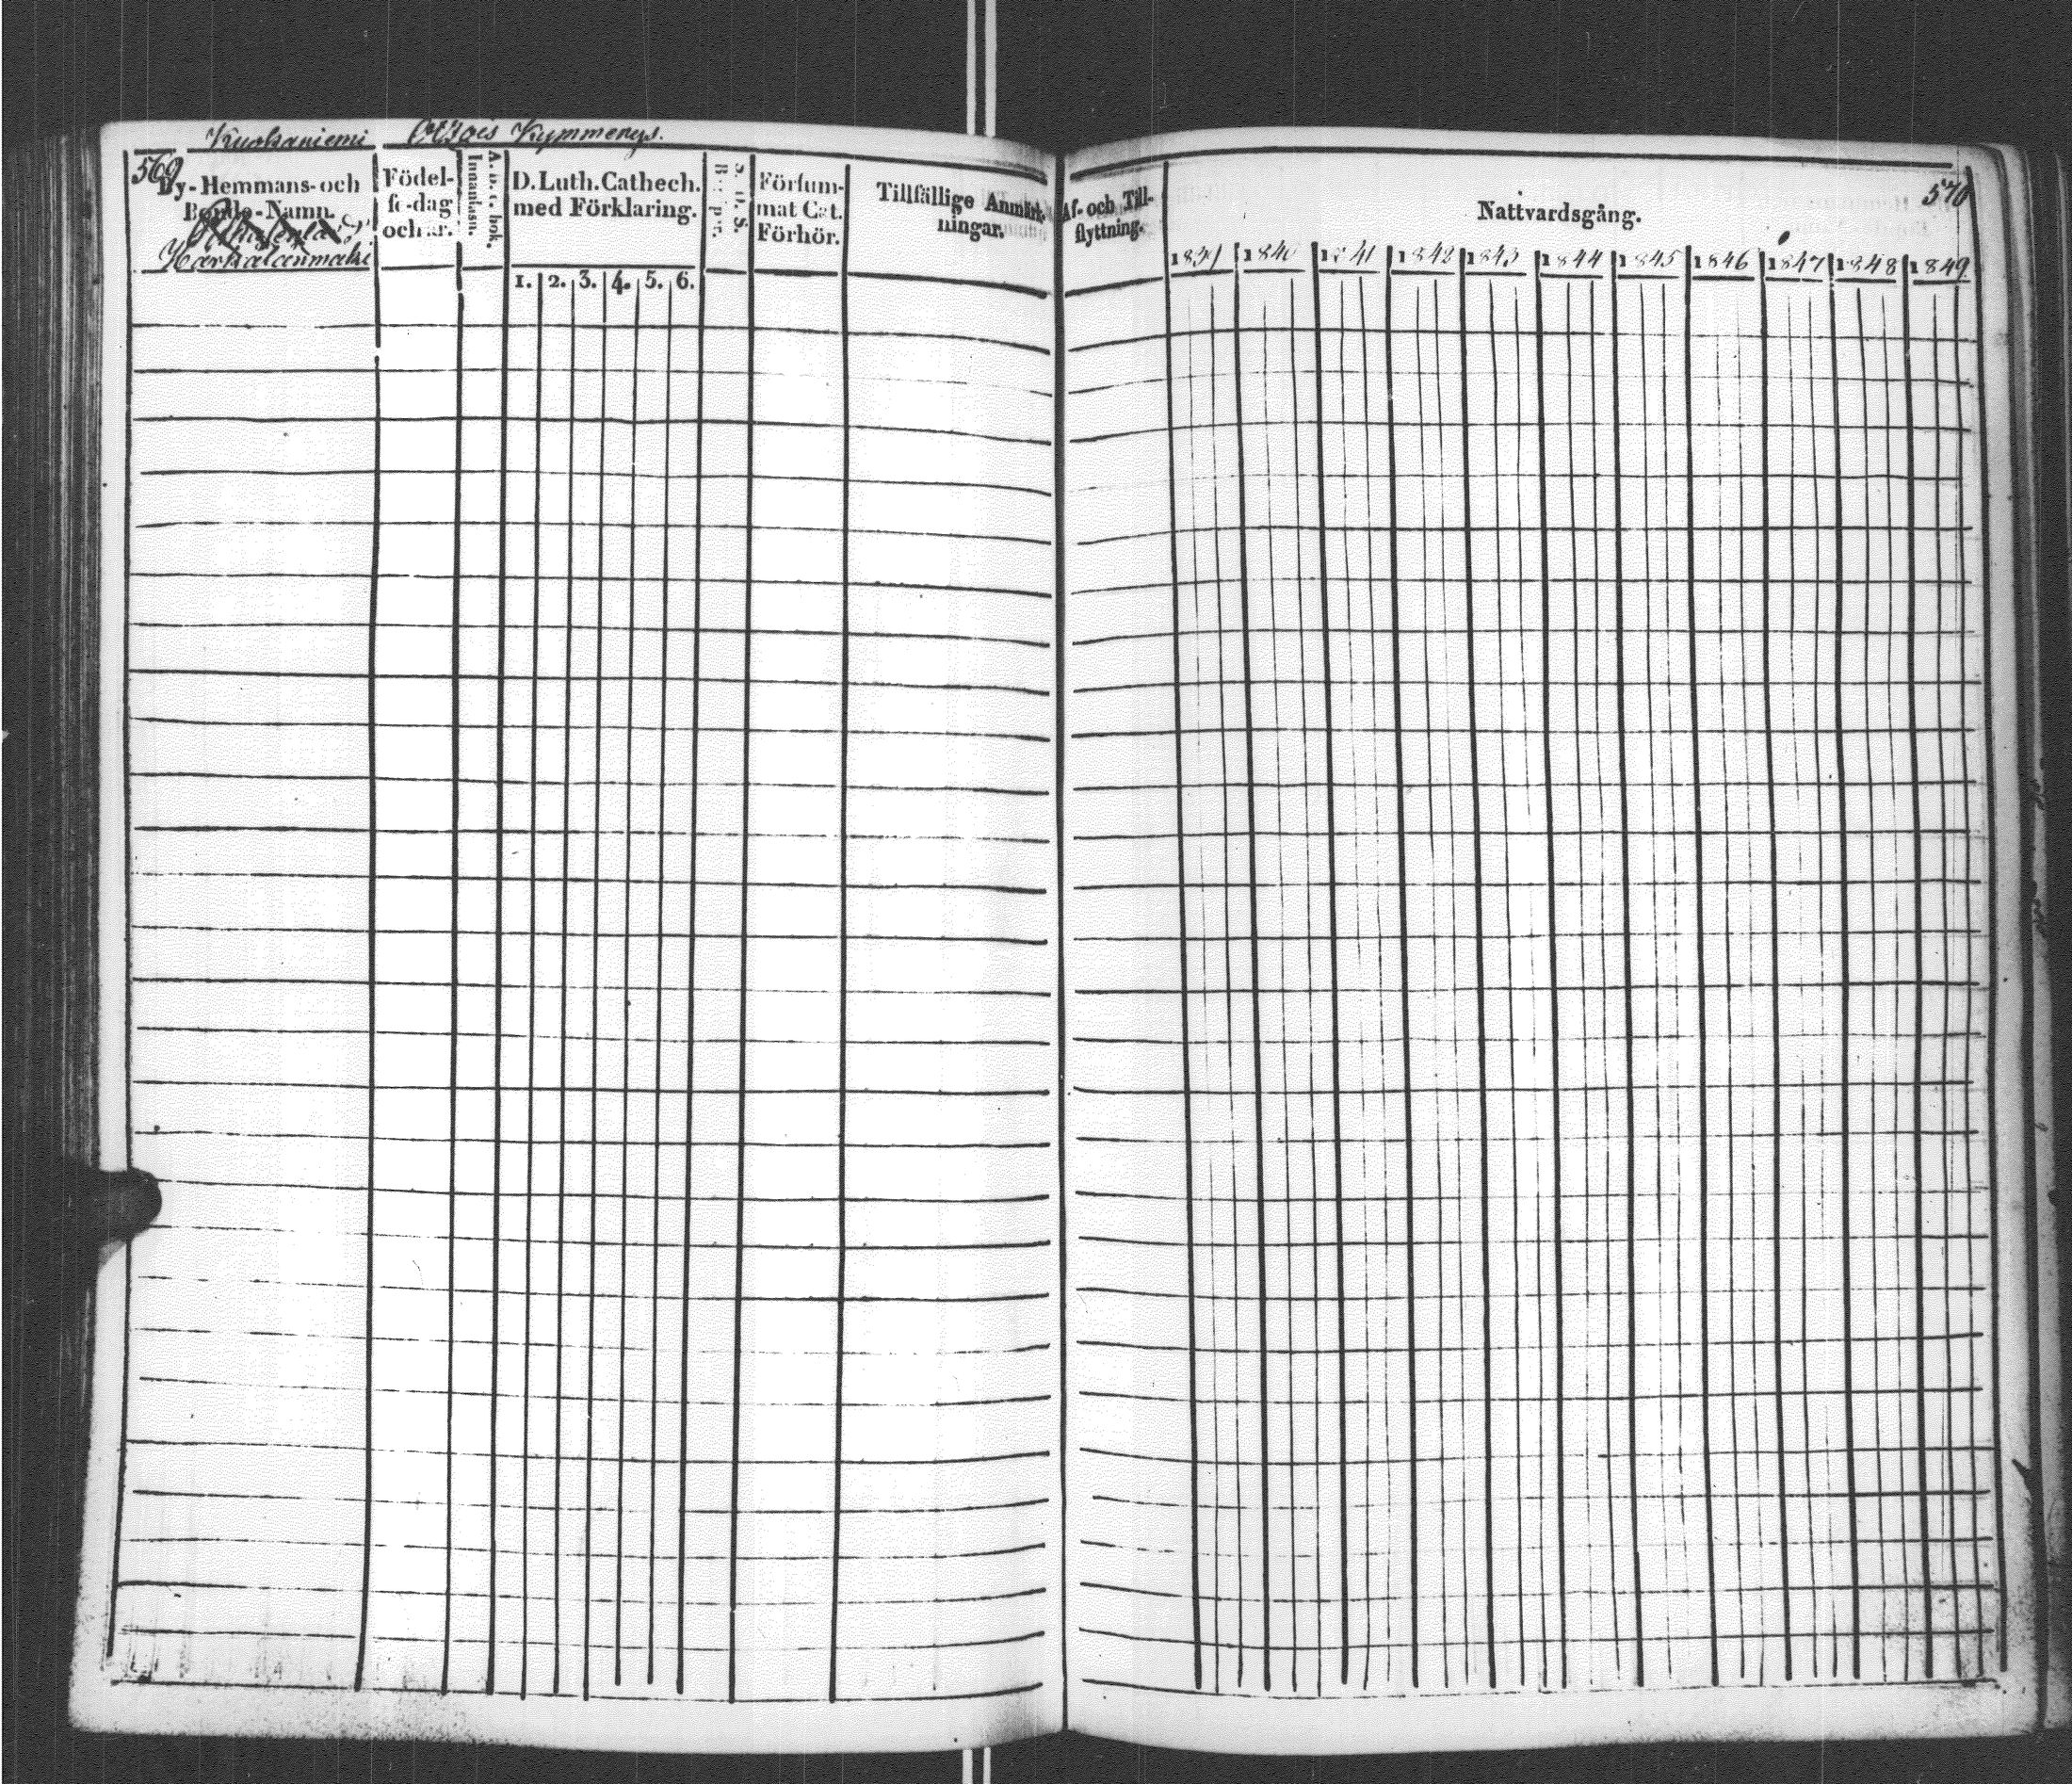 Kuokaniemi Kymmenys.
569
By-Hemmans-och
Bonde-Namn.
Födel-
se-dag
och år.
A. B. C. bok.
Innanläsn.
D. Luth. Cathech.
med Förklaring.
1. 2. 3. 4. 5. 6.
Försum-
mat Cat.
Förhör.
Tillfällige Anmärk-
ningar.
Af- och Till-
flyttning.
570
Nattvardsgång.
1839 1840 1841 1842 1843 1844 1845 1846 1847 1848 1849